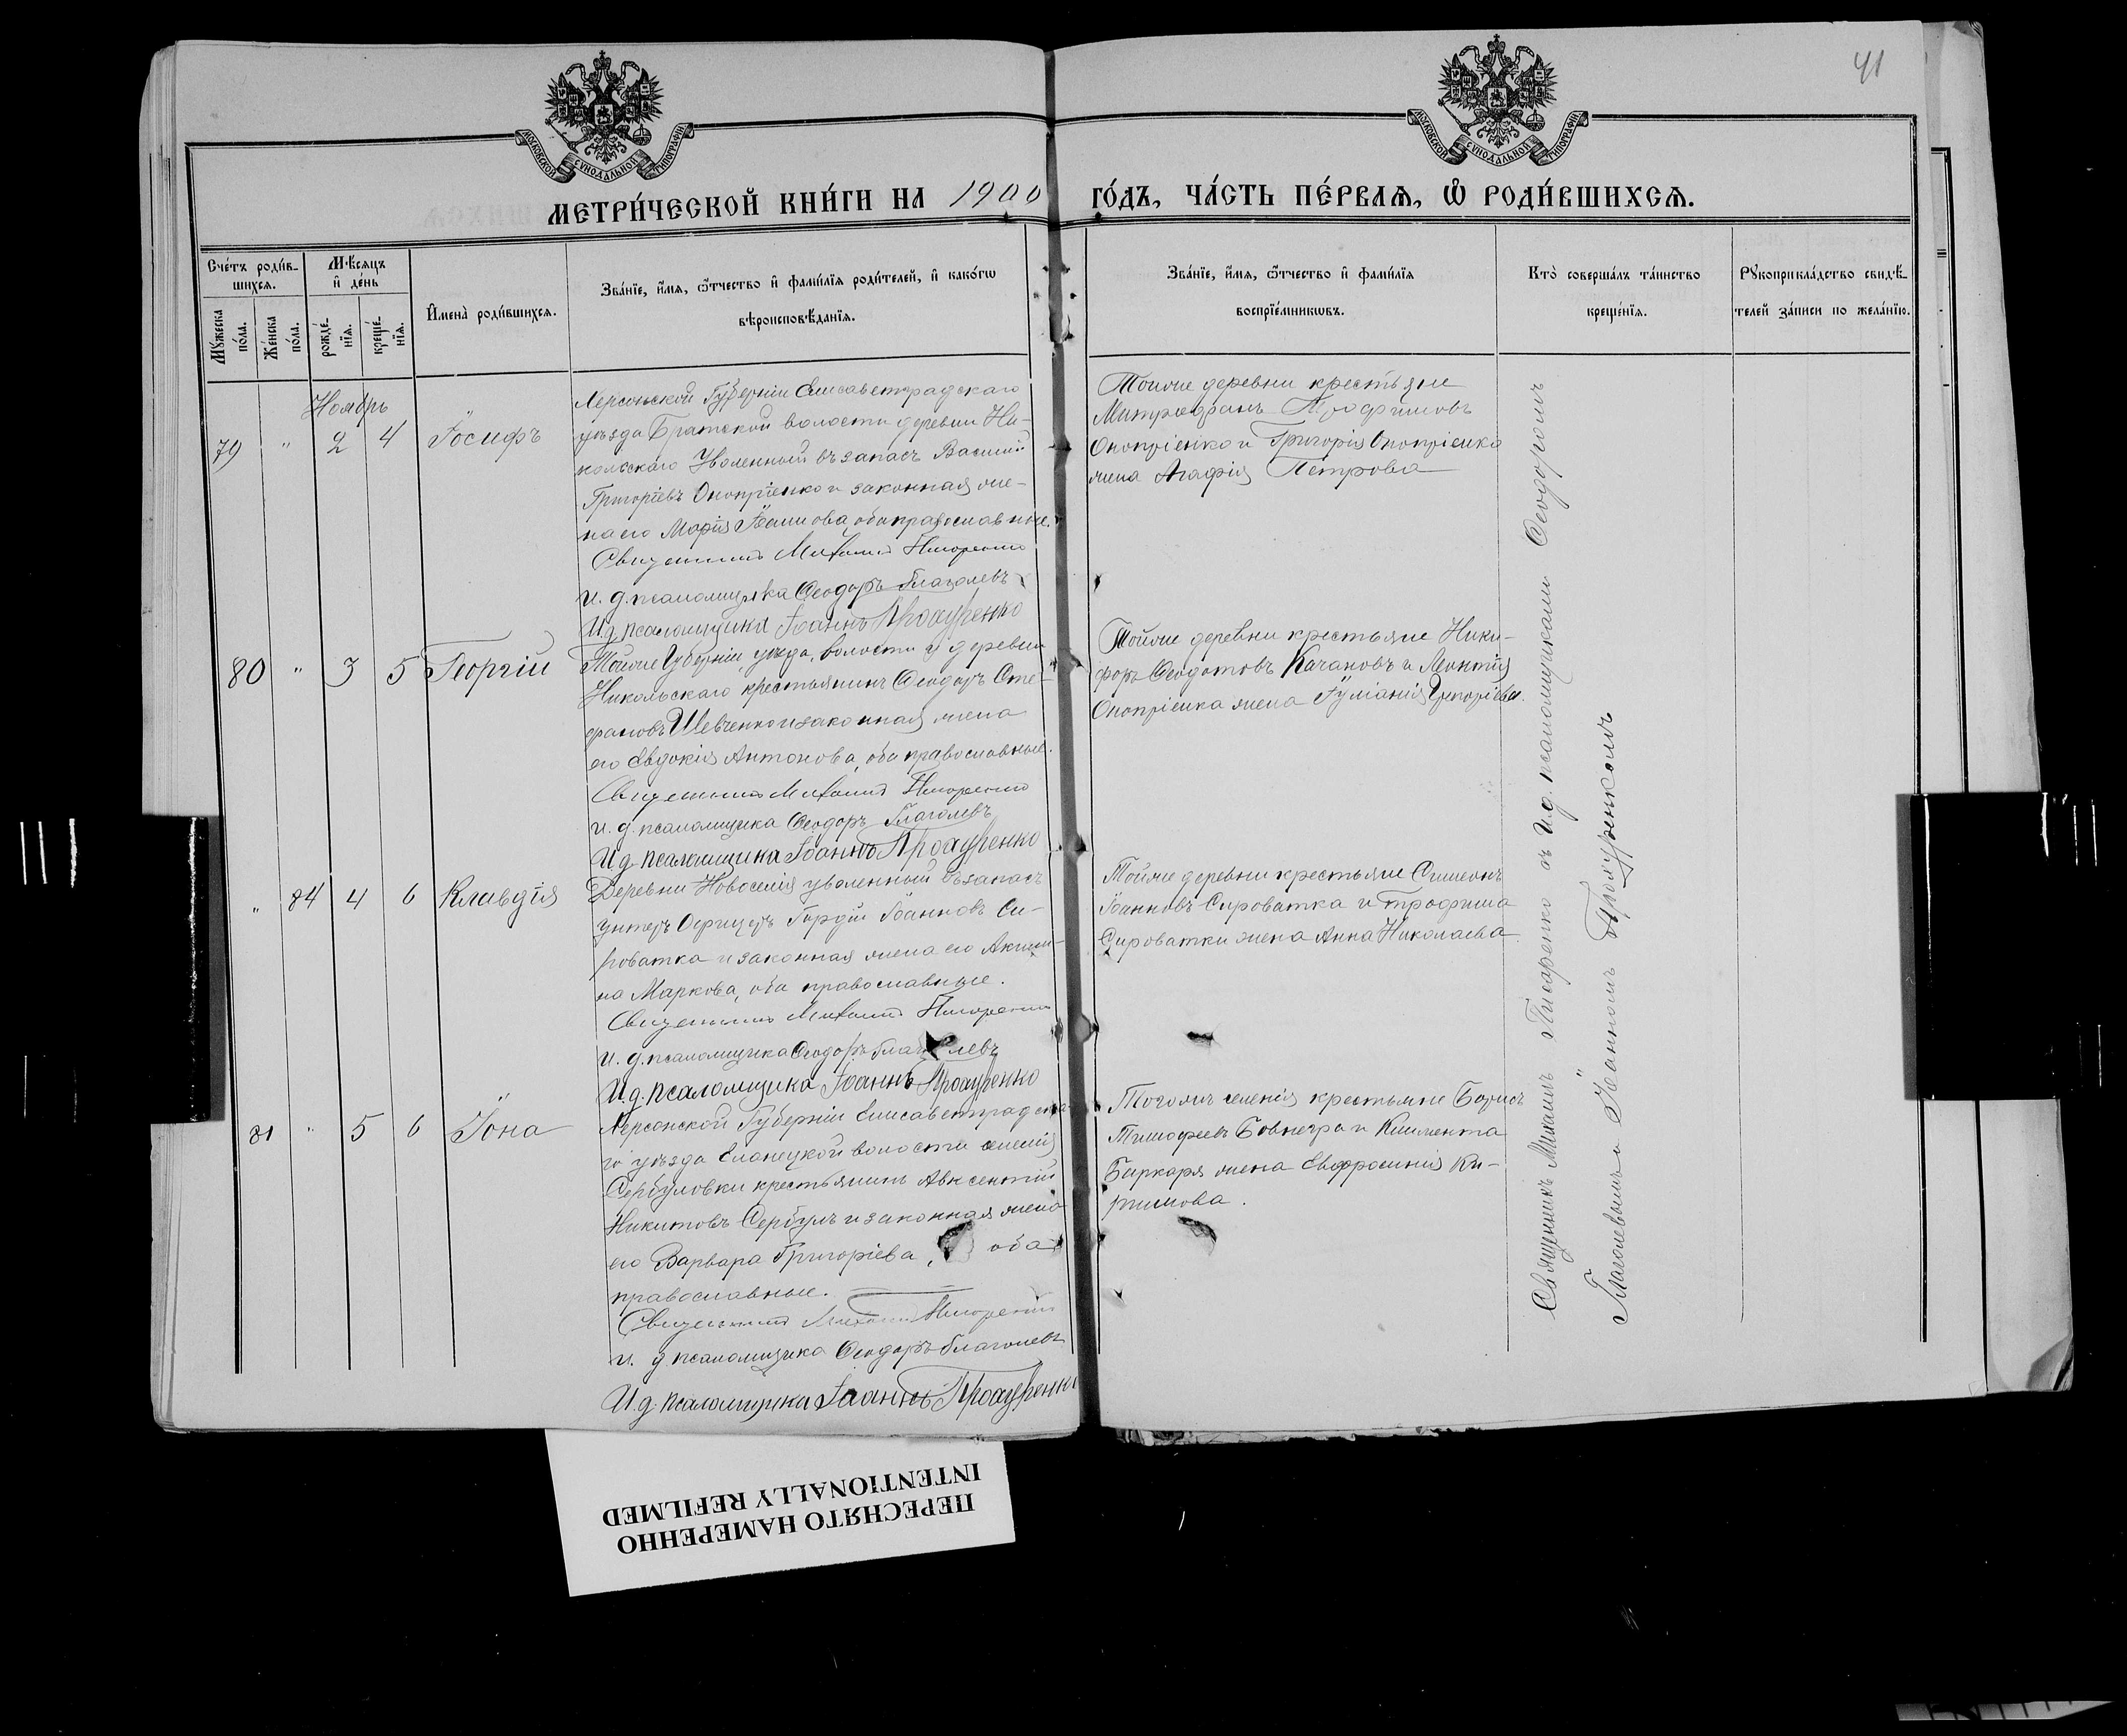 41
МОСКОВСКОЙ СУНОДАЛЬНОЙ ТИПОГРАФІИ
МОСКОВСКОЙ СУНОДАЛЬНОЙ ТИПОГРАФІИ
МЕТРИ́ЧЕСКОЙ КНИ́ГИ НА 1900 ГО́ДЪ, ЧА́СТЬ ПЕ́РВАѦ, Ѽ РОДИ́ВШИХСѦ.
Сче́тъ роди́в-
шихсѧ.
Мꙋжеска
по́ла.
Же́нска
по́ла.
Мѣсяцъ
и҆ де́нь
рожде́-
нїѧ.
креще́-
нїѧ.
И҆мена̀ роди́вшихсѧ.
Зва́нїе, и҆́мѧ, ѻ҆́тчество и҆ фами́лїѧ роди́телей, и҆ како́гѡ
вѣроисповѣ́данїѧ.
Зва́нїе, и҆́мѧ, ѻ҆́тчество и҆ фами́лїѧ
воспрїе́мникѡвъ.
Кто̀ соверша́лъ та́инство
креще́нїѧ.
Рꙋкоприкла́дство свидѣ́-
телей за́писи по жела́нїю.
Ноябрь
79 " 2 4 Іосифъ
Херсонской Губерніи Елисаветградскаго
уѣзда Братской волости деревни Ни-
кольскаго Уволенный въ запасъ Василій
Григоріевъ Оноприенко и законная же-
на его Марія Іванова, оба православные.
Священникъ Михаилъ Писаренко
и. д. псаломщика Ѳеодоръ Глаголевъ
И.д. псаломщика Іоаннъ Прокуренко
Тойже деревни крестьяне
Митрофанъ Трофимовъ
Онопріенко и Григорія Онопріенко
жена Агафія Петрова
80 " 3 5 Георгій
Тойже Губерніи, уѣзда, волости и деревни
Никольскаго крестьянинъ Ѳеодоръ Сте-
фановъ Шевченко и законная жена
его Евдокія Антонова, оба православные.
Священникъ Михаилъ Писаренко
и. д. псаломщика Ѳеодоръ Глаголевъ
И д псаломщика Іоаннъ Прокуренко
Тойже деревни крестьяне Ники-
форъ Ѳеодотовъ Качановъ и Леонтія
Онопріенка жена Іуліанія Григоріева.
" 84 4 6 Клавдія
Деревни Новоселія уволенный въ запасъ
унтеръ Офицеръ Гордій Іоанновъ Си-
роватка и законная жена его Акили-
на Маркова, оба православные.
Священникъ Михаилъ Писаренко
и. д. псаломщика Ѳеодоръ Глаголевъ
И.д. псаломщика Іоаннъ Прокуренко
Тойже деревни крестьяне Симеонъ
Іоанновъ Сироватка и Трофима
Сироватки жена Анна Николаева
81 " 5 6 Іона
Херсонской Губерніи Елисаветградска-
го уѣзда Еланецкой волости селенія
Сербуловки крестьянинъ Авксентій
Никитовъ Сербулъ и законная жена
его Варвара Григоріева, оба
православные.
Священникъ Михаилъ Писаренко
и. д псаломщика Ѳеодоръ Глаголевъ
И.д. псаломщика Іоаннъ Прокуренко
Тогожъ селенія крестьяне Борисъ
Тимофеевъ и Климента
жена Евфросинія Ки-
Священникъ Михаилъ Писаренко съ И.д. псаломщиками Ѳеодоромъ
Глаголевымъ и Іоанномъ Прокуренкомъ
ПЕРЕСНЯТО НАМЕРЕННО
INTENTIONALLY REFILMED